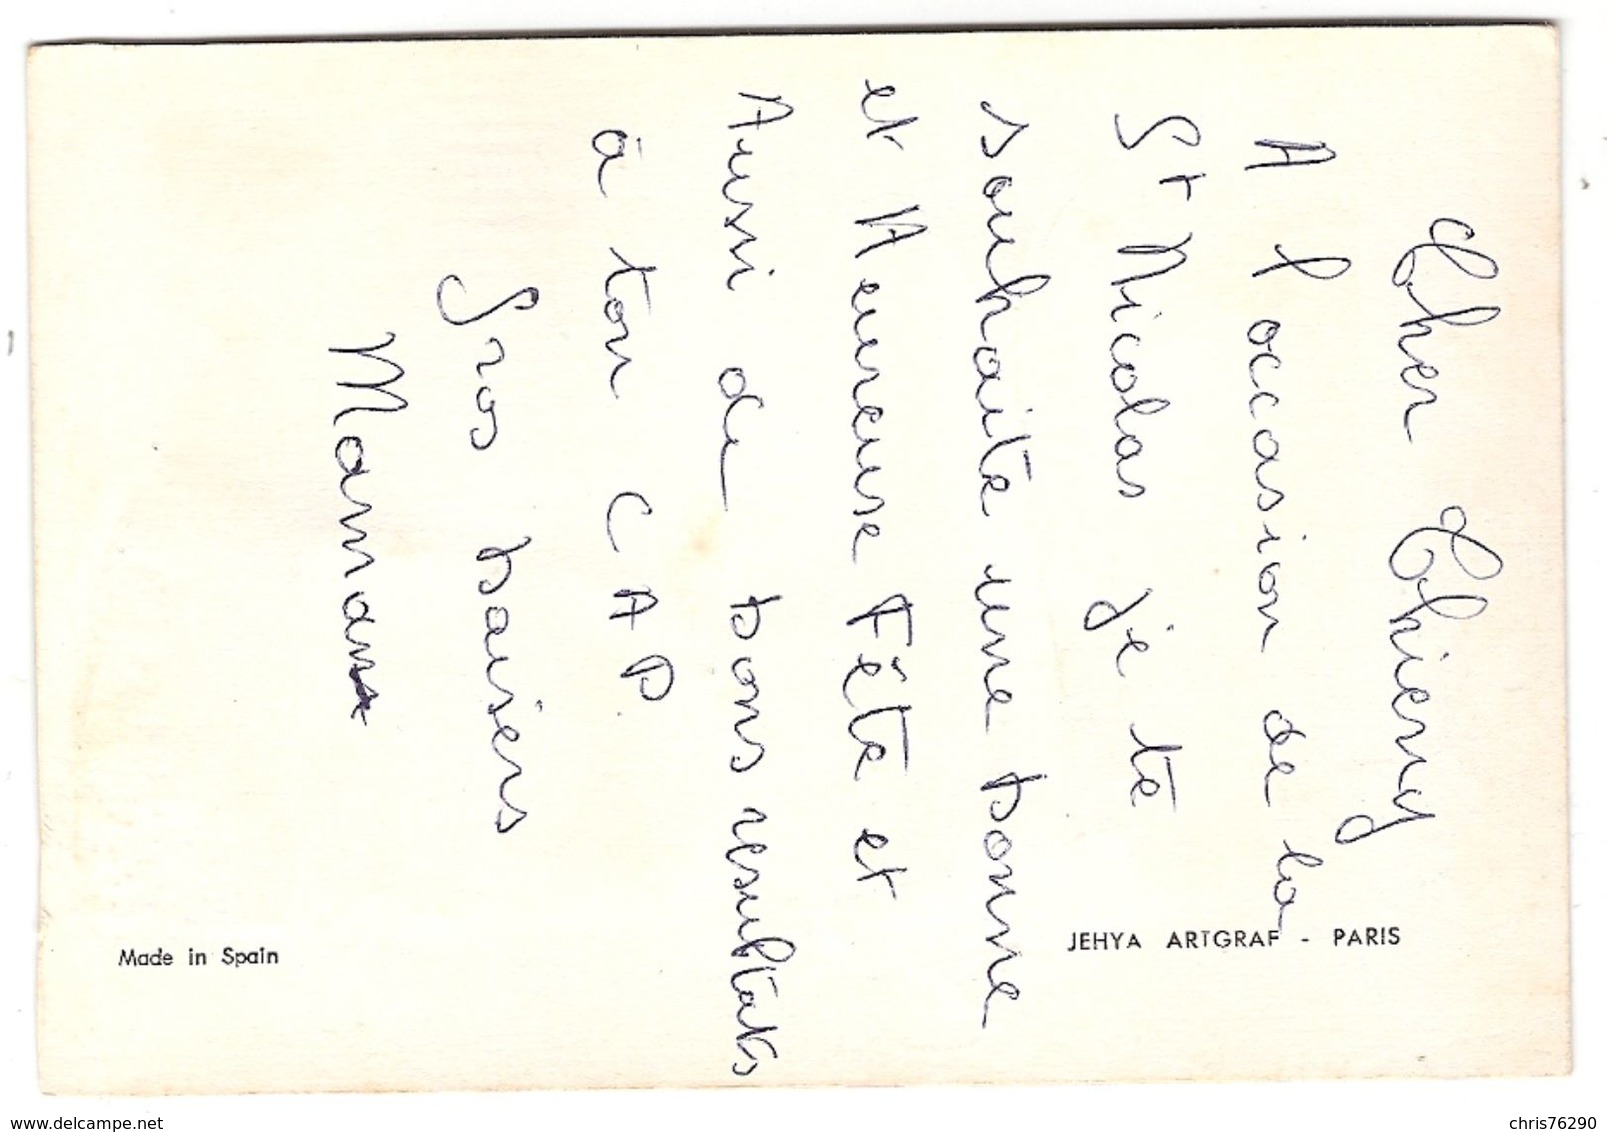 Cher Thierry
A l'occasion de la
St Nicolas je te
souhaite une bonne
et Heureuse Fête et
Aussi de bons resultats
à ton C A P
Gros baisers
Maman
JEHYA ARTGRAF - PARIS
Made in Spain
www.delcampe.net
chris76290